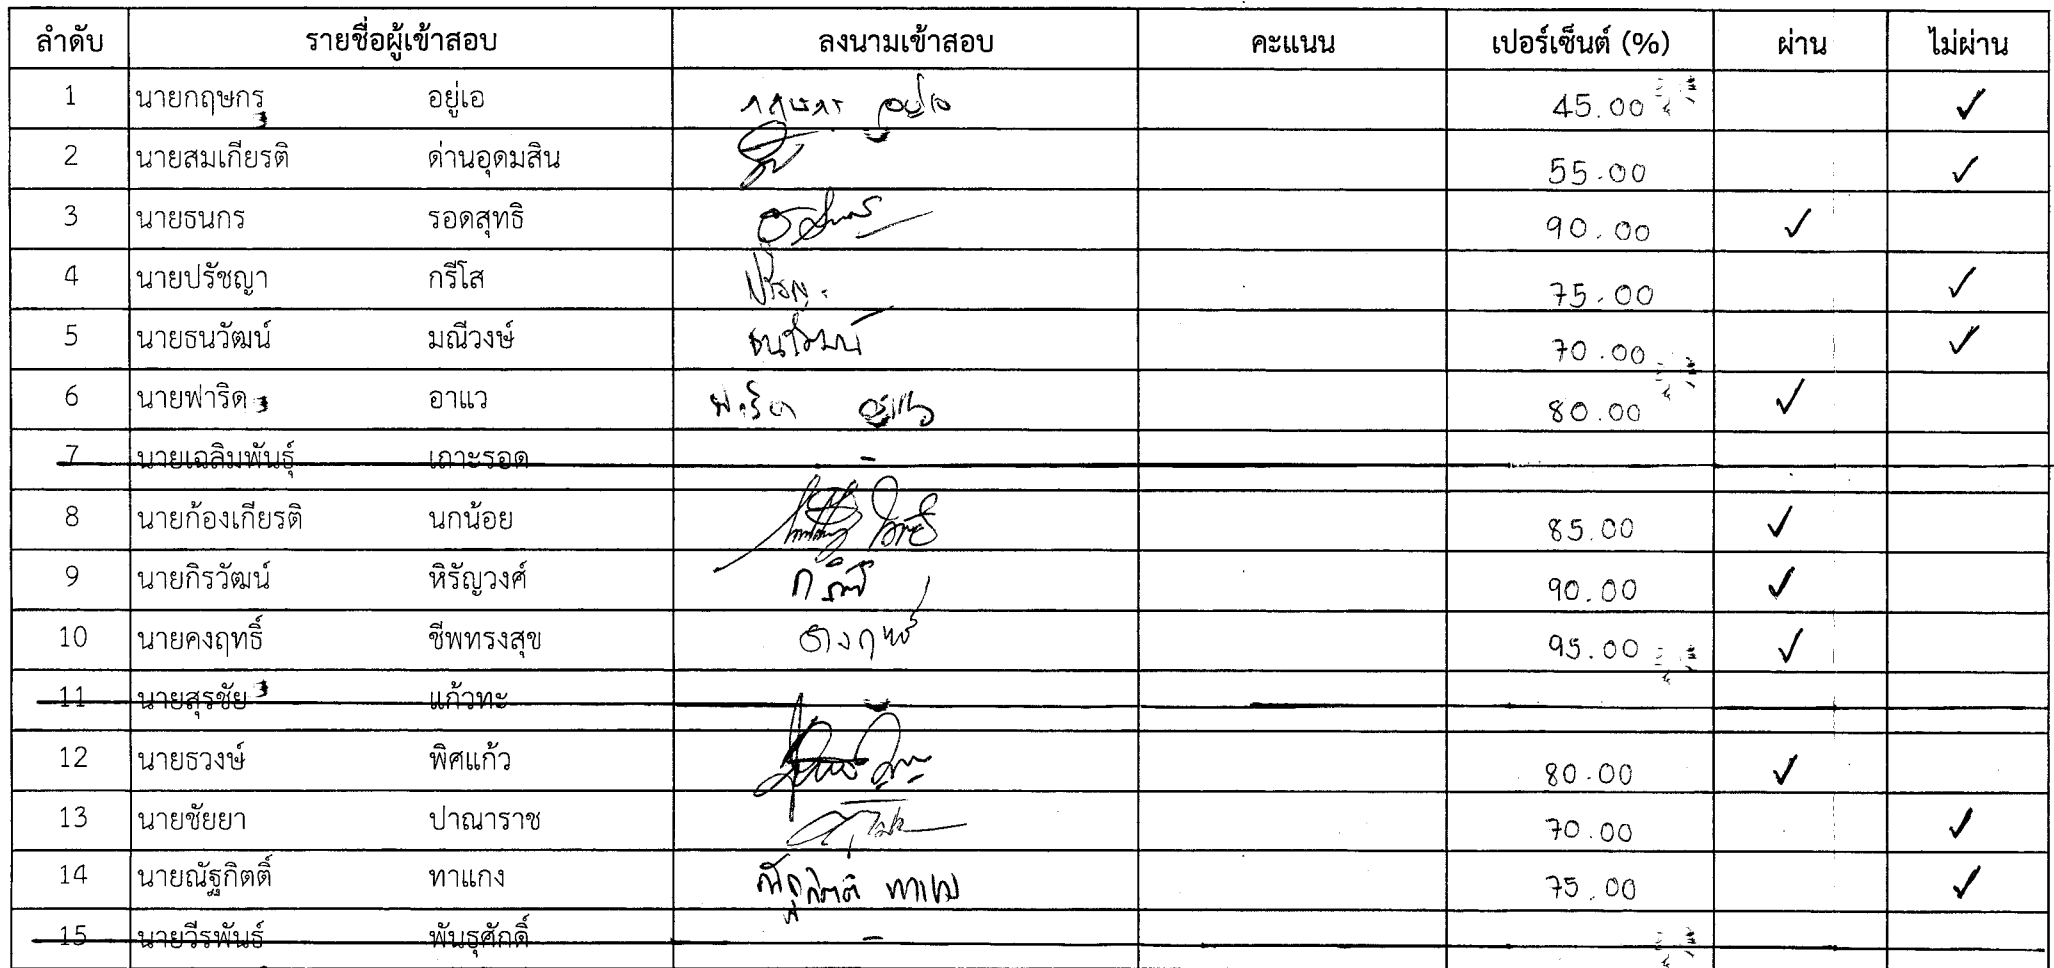 ลำดับ รายชื่อผู้เข้าสอบ ลงนามเข้าสอบ คะแนน เปอร์เซ็นต์ (%) ผ่าน ไม่ผ่าน
1 นายกฤษกร อยู่เอ กฤษกร อยู่เอ 45.00 ✓
2 นายสมเกียรติ ด่านอุดมสิน 55.00 ✓
3 นายธนกร รอดสุทธิ 90.00 ✓
4 นายปรัชญา กรีโส ปรัชญา 75.00 ✓
5 นายธนวัฒน์ มณีวงษ์ ธนวัฒน์ 70.00 ✓
6 นายฟาริด อาแว ฟาริด อาแว 80.00 ✓
7 นายเฉลิมพันธุ์ เถาะรอด -
8 นายก้องเกียรติ นกน้อย 85.00 ✓
9 นายกิรวัฒน์ หิรัญวงศ์ 90.00 ✓
10 นายคงฤทธิ์ ชีพทรงสุข คงฤทธิ์ 95.00 ✓
11 นายสุรชัย แก้วทะ -
12 นายธวงษ์ พิศแก้ว 80.00 ✓
13 นายชัยยา ปาณาราช 70.00 ✓
14 นายณัฐกิตติ์ ทาแกง ณัฐกิตติ์ ทาแกง 75.00 ✓
15 นายวีรพันธ์ พันธุศักดิ์ -